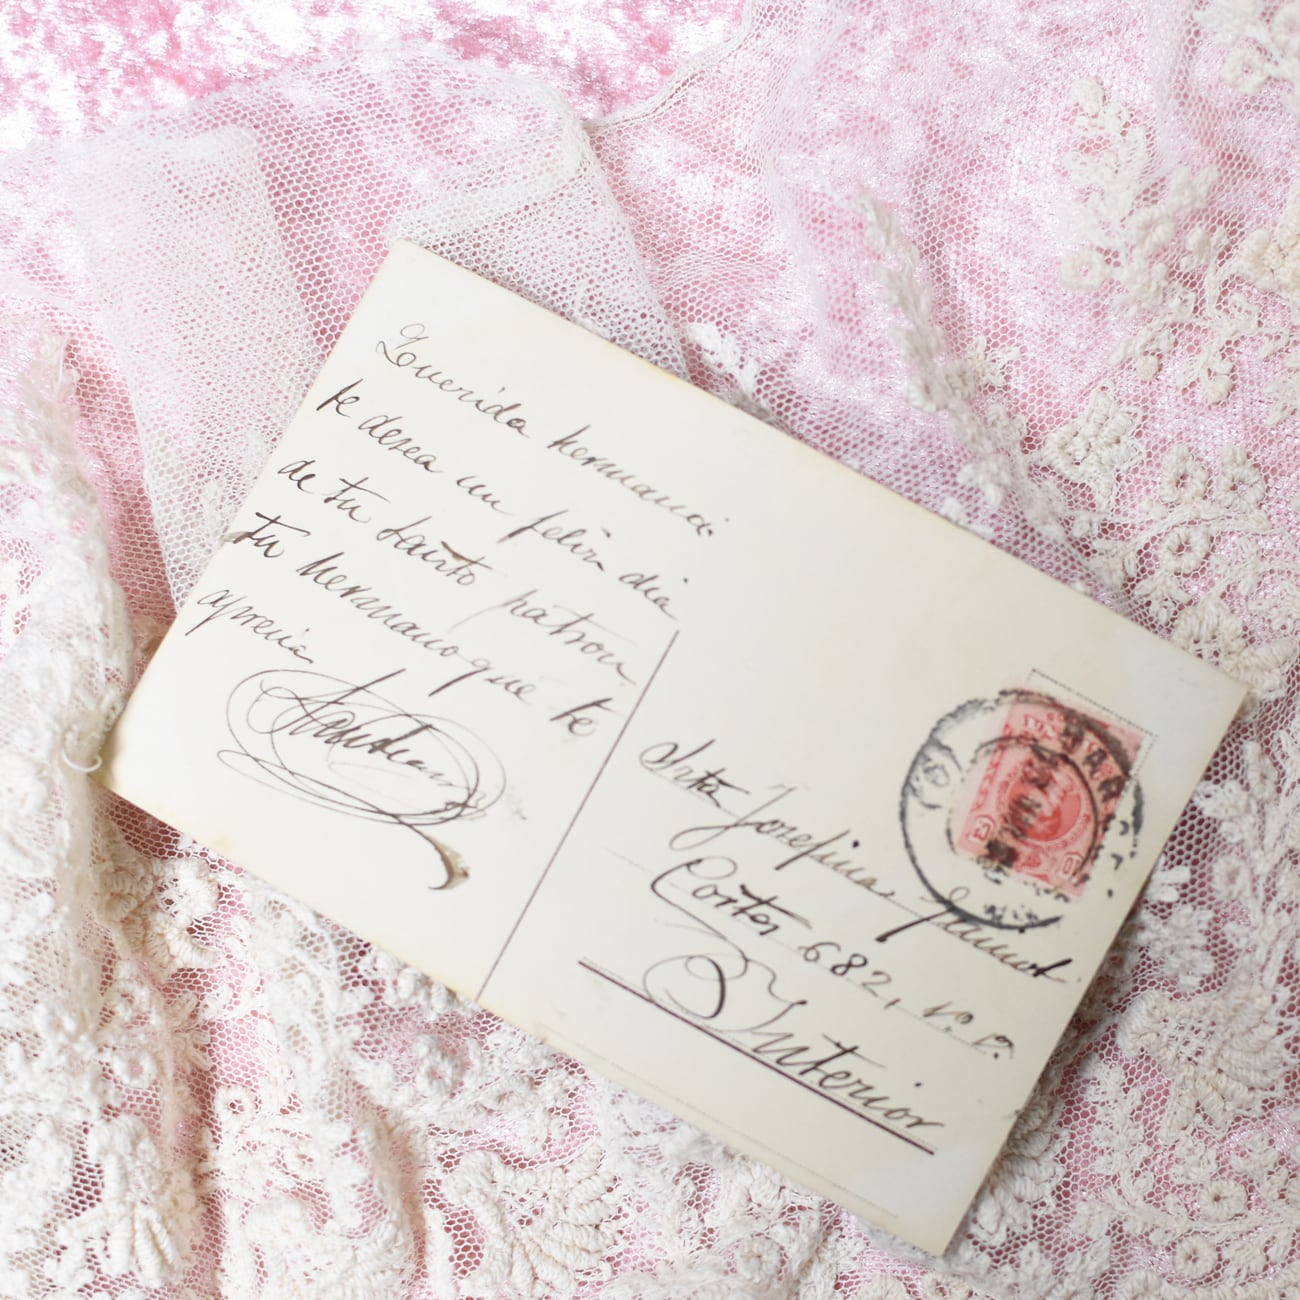 Querida hermana:
te desea un feliz dia
de tu santo patron
tu hermano que te
aprecia
Srta Josefina
Cortes 682, 1º 1ª
Interior
10